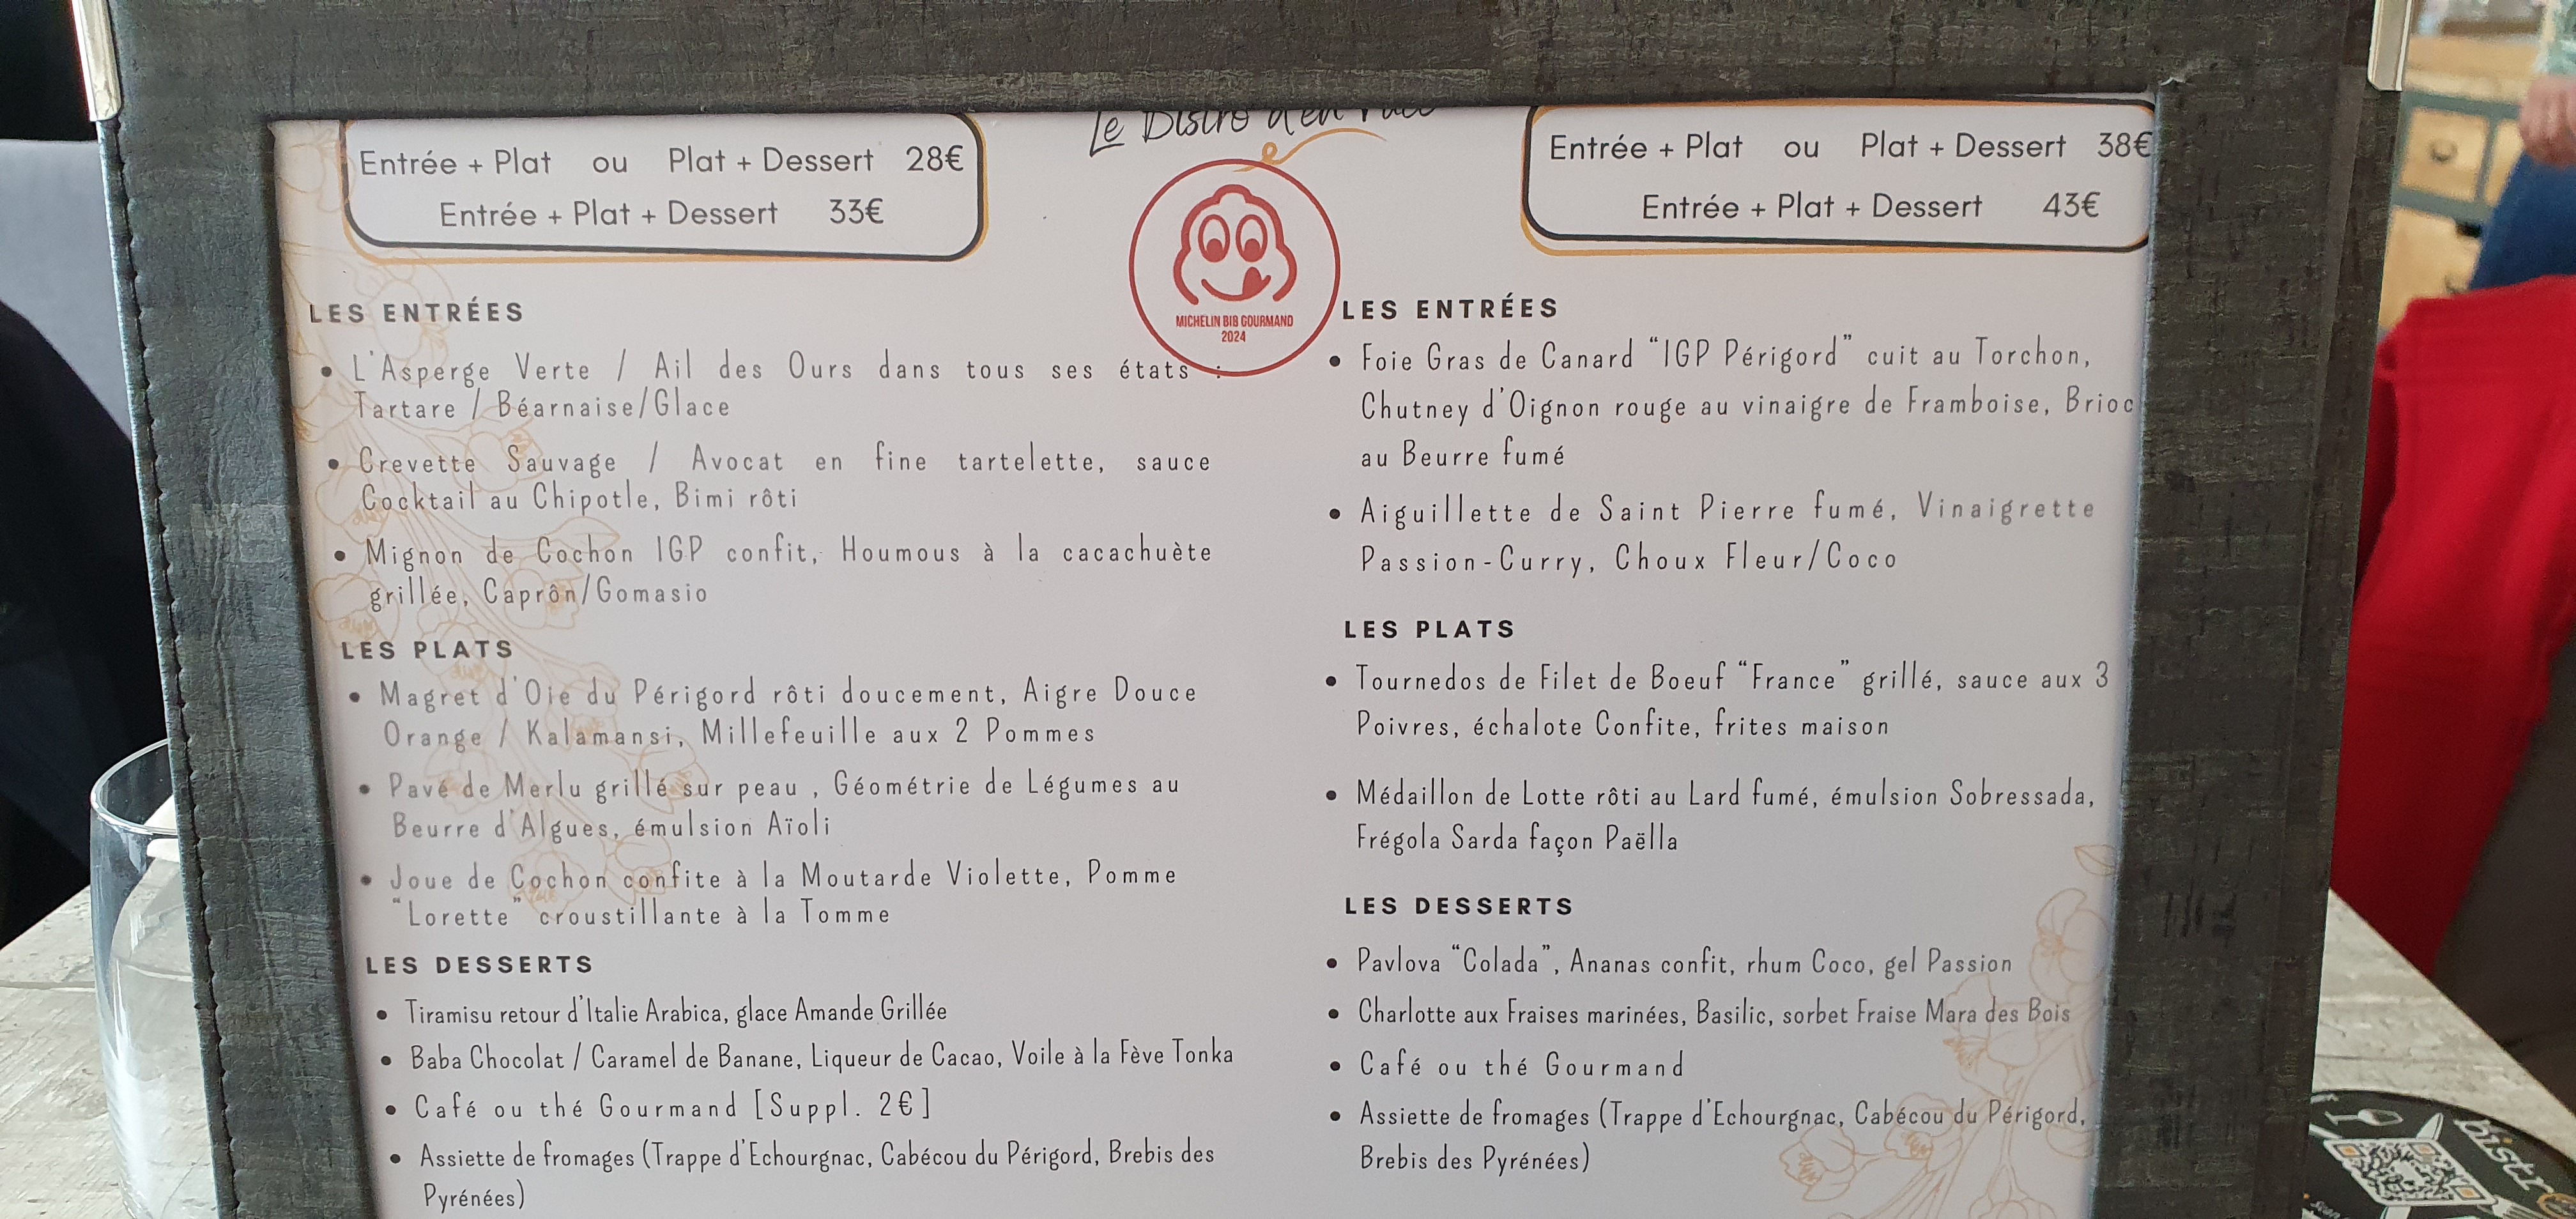 Le Bistro d'en
Entrée + Plat ou Plat + Dessert 28€
Entrée + Plat + Dessert 33€
LES ENTRÉES
• L'Asperge Verte / Ail des Ours dans tous ses états :
Tartare / Béarnaise/Glace
• Crevette Sauvage / Avocat en fine tartelette, sauce
Cocktail au Chipotle, Bimi rôti
• Mignon de Cochon IGP confit, Houmous à la cacachuète
grillée, Caprôn/Gomasio
LES PLATS
• Magret d'Oie du Périgord rôti doucement, Aigre Douce
Orange / Kalamansi, Millefeuille aux 2 Pommes
• Pavé de Merlu grillé sur peau , Géométrie de Légumes au
Beurre d'Algues, émulsion Aïoli
• Joue de Cochon confite à la Moutarde Violette, Pomme
"Lorette" croustillante à la Tomme
LES DESSERTS
• Tiramisu retour d'Italie Arabica, glace Amande Grillée
• Baba Chocolat / Caramel de Banane, Liqueur de Cacao, Voile à la Fève Tonka
• Café ou thé Gourmand [Suppl. 2€]
• Assiette de fromages (Trappe d'Echourgnac, Cabécou du Périgord, Brebis des
Pyrénées)
MICHELIN BIB GOURMAND
2024
Entrée + Plat ou Plat + Dessert 38€
Entrée + Plat + Dessert 43€
LES ENTRÉES
• Foie Gras de Canard "IGP Périgord" cuit au Torchon,
Chutney d'Oignon rouge au vinaigre de Framboise, Brioc
au Beurre fumé
• Aiguillette de Saint Pierre fumé, Vinaigrette
Passion-Curry, Choux Fleur/Coco
LES PLATS
• Tournedos de Filet de Boeuf "France" grillé, sauce aux 3
Poivres, échalote Confite, frites maison
• Médaillon de Lotte rôti au Lard fumé, émulsion Sobressada,
Frégola Sarda façon Paëlla
LES DESSERTS
• Pavlova "Colada", Ananas confit, rhum Coco, gel Passion
• Charlotte aux Fraises marinées, Basilic, sorbet Fraise Mara des Bois
• Café ou thé Gourmand
• Assiette de fromages (Trappe d'Echourgnac, Cabécou du Périgord,
Brebis des Pyrénées)
bistr